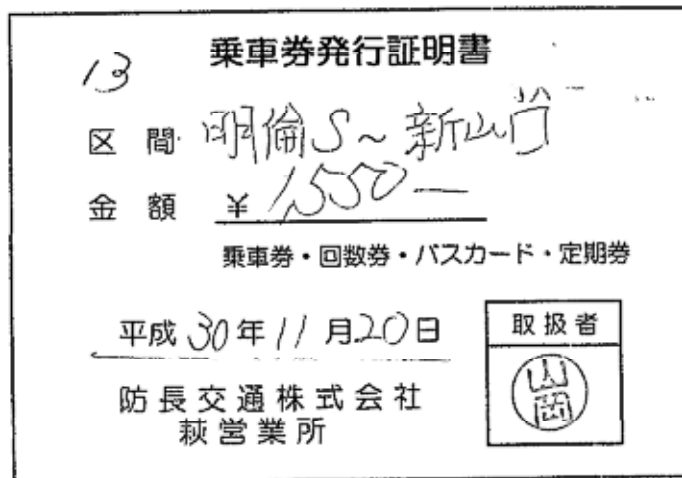 乗車券発行証明書
13
区間 明倫S~新山口
金額 ¥1,550-
乗車券・回数券・バスカード・定期券
平成30年11月20日
取扱者
山岡
防長交通株式会社
萩営業所